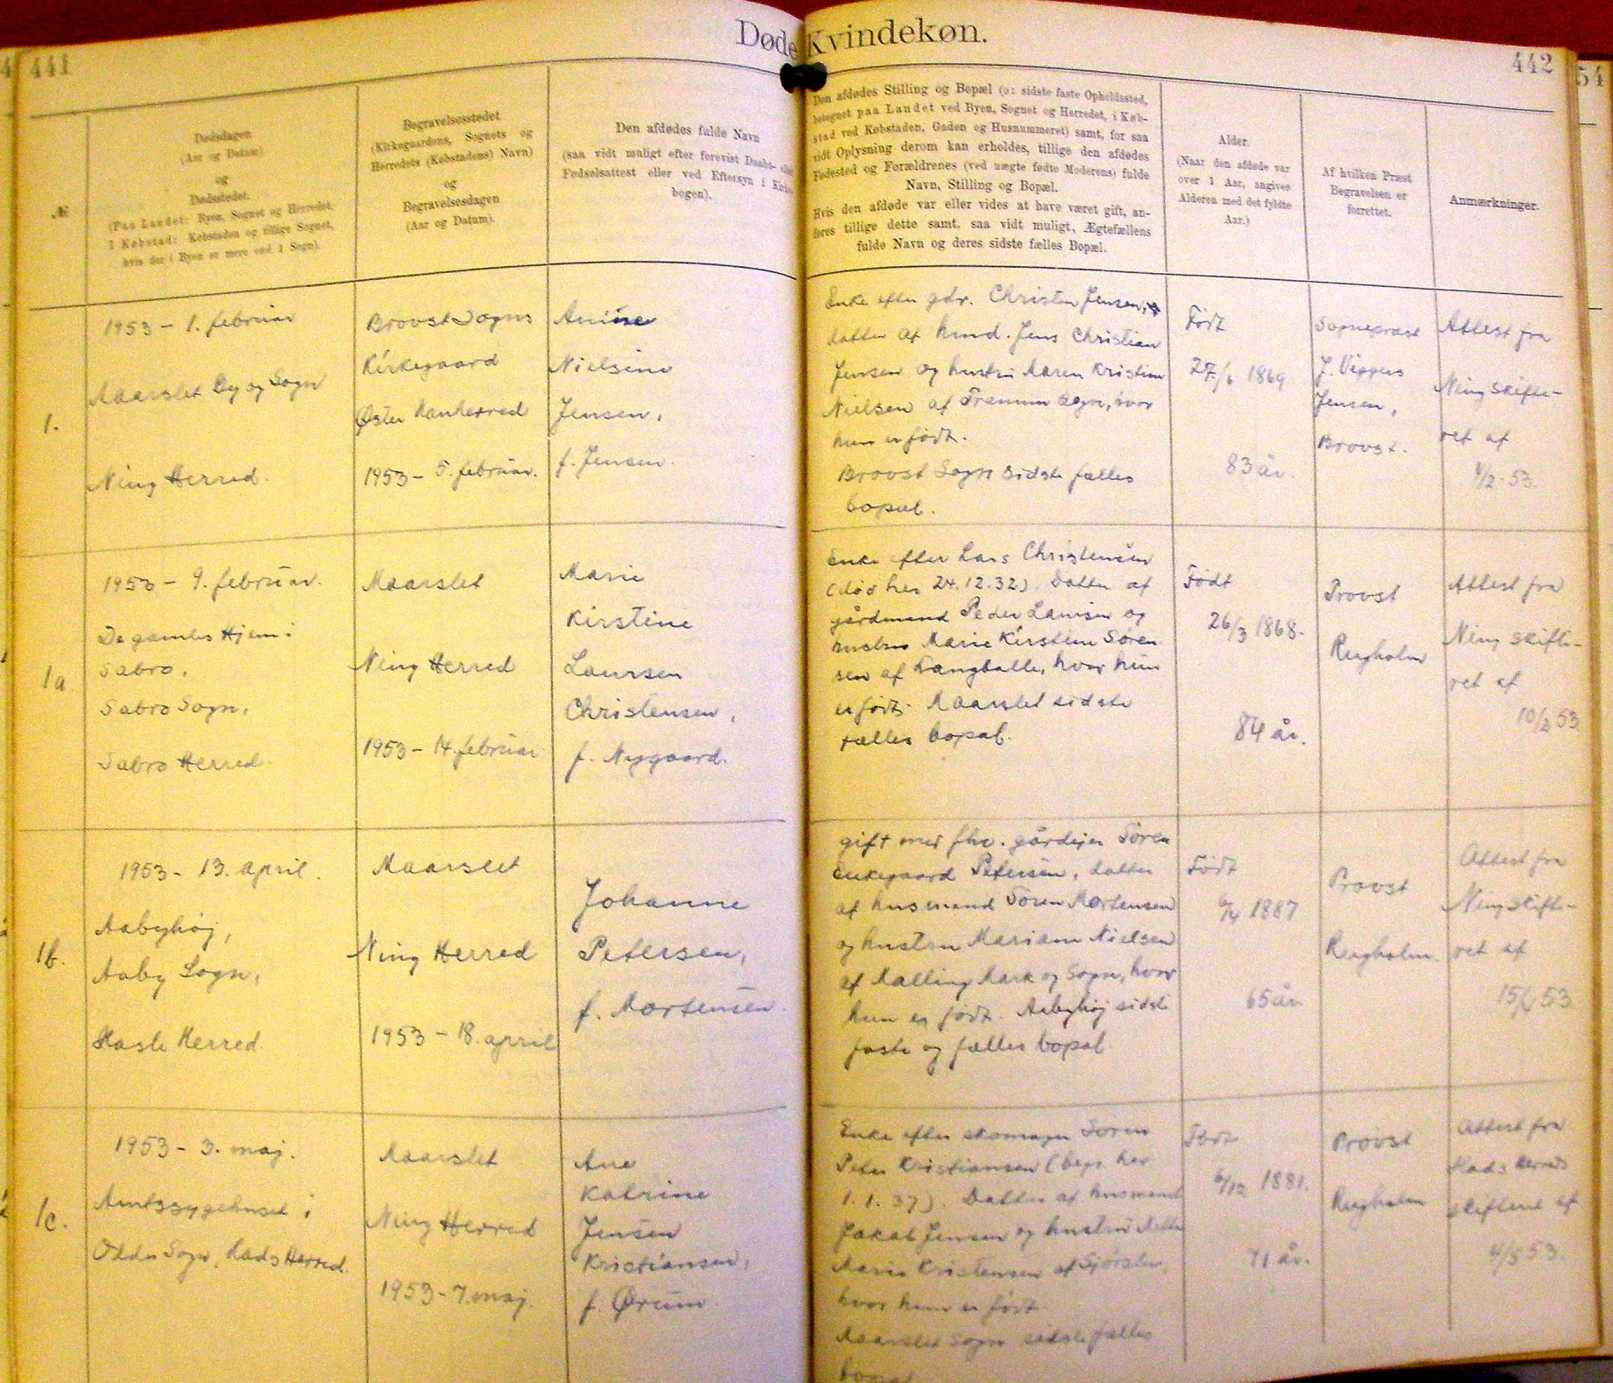 441
Døde Kvindekøn.
442
54
№
Dødsdagen
(Aar og Datum)
og
Dødsstedet.
(Paa Landet: Byen, Sognet og Herredet.
I Købstad: Købstaden og tillige Sognet,
hvis der i Byen er mere end 1 Sogn).
Begravelsesstedet
(Kirkegaardens, Sognets og
Herredets (Købstadens) Navn)
og
Begravelsesdagen
(Aar og Datum).
Den afdødes fulde Navn
(saa vidt muligt efter forevist Daabs- eller
Fødselsattest eller ved Eftersyn i Kirke-
bogen).
Den afdødes Stilling og Bopæl (ɔ: sidste faste Opholdssted,
betegnet paa Landet ved Byen, Sognet og Herredet, i Køb-
stad ved Købstaden, Gaden og Husnummeret) samt, for saa
vidt Oplysning derom kan erholdes, tillige den afdødes
Fødested og Forældrenes (ved uægte fødte Moderens) fulde
Navn, Stilling og Bopæl.
Hvis den afdøde var eller vides at have været gift, an-
føres tillige dette samt, saa vidt muligt, Ægtefællens
fulde Navn og deres sidste fælles Bopæl.
Alder.
(Naar den afdøde var
over 1 Aar, angives
Alderen med det fyldte
Aar.)
Af hvilken Præst
Begravelsen er
forrettet.
Anmærkninger.
1.
1953 - 1. februar
Maarslet By og Sogn
Ning Herred.
Brovst Sogns
Kirkegaard
Øster Hanherred
1953 - 5. februar.
Anine
Nielsine
Jensen,
f. Jensen.
Enke efter gdr. Christen Jensen,
datter af husmd. Jens Christian
Jensen og hustru Maren Kristine
Nielsen af Tranum Sogn, hvor
hun er født.
Brovst Sogn sidste fælles
bopæl.
Født
27/6 1869
83 år.
Sognepræst
J. Viggers
Jensen,
Brovst.
Attest fra
Ning skifte-
ret af
4/2-53.
1a
1953 - 9. februar.
De gamles Hjem i
Sabro,
Sabro Sogn,
Sabro Herred.
Maarslet
Ning Herred
1953 - 14. februar
Marie
Kirstine
Laursen
Christensen,
f. Nygaard.
Enke efter Lars Christensen
(død her 24.12.32). Datter af
gårdmand Peder Laursen og
hustru Marie Kirstine Søren-
sen af Langballe, hvor hun
er født. Maarslet sidste
fælles bopæl.
Født
26/3 1868.
84 år.
Provst
Rugholm
Attest fra
Ning skifte-
ret af
10/2 53
1b.
1953 - 13. april.
Aabyhøj,
Aaby Sogn,
Hasle Herred.
Maarslet
Ning Herred
1953 - 18. april
Johanne
Petersen,
f. Mortensen.
gift med fhv. gårdejer Søren
Enkegaard Petersen, datter
af husmand Søren Mortensen
og hustru Mariane Nielsen
af Malling Mark og Sogn, hvor
hun er født. Aabyhøj sidste
faste og fælles bopæl
Født
1887
65 år
Provst
Rugholm.
Attest fra
Ning skifte-
ret af
15/4 53
1c.
1953 - 3. maj.
Amtssygehuset i
Odder Sogn, Hads Herred.
Maarslet
Ning Herred
1953 - 7. maj.
Ane
Katrine
Jensen
Kristiansen,
f. Ørum
Enke efter skomager Søren
Peter Kristiansen (begr. her
1.1.37). Datter af husmand
Jakob Jensen og hustru Mette
Marie Kristensen af
hvor hun er født.
Maarslet Sogn sidste fælles
bopæl
Født
6/12 1881.
71 år.
Provst
Rugholm
Attest fra
Hads Herreds
skifteret af
4/5 53.